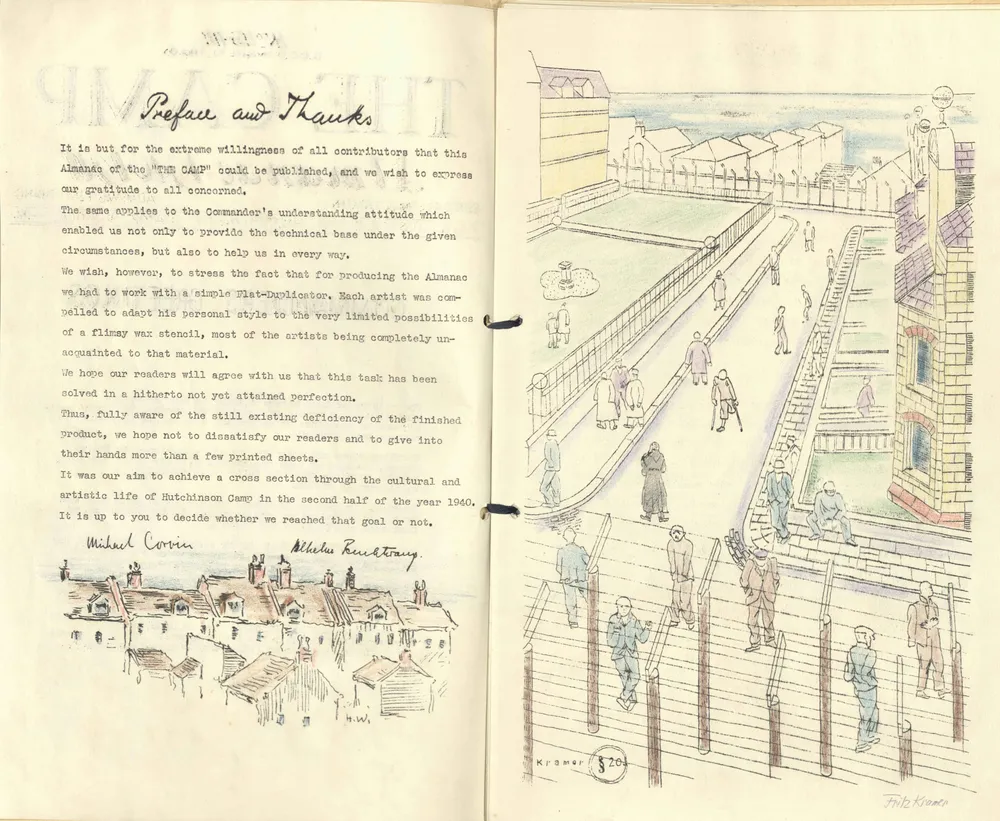 Preface and Thanks
It is but for the extreme willingness of all contributors that this
Almanac of the "THE CAMP" could be published, and we wish to express
our gratitude to all concerned.
The same applies to the Commander's understanding attitude which
enabled us not only to provide the technical base under the given
circumstances, but also to help us in every way.
We wish, however, to stress the fact that for producing the Almanac
we had to work with a simple Flat-Duplicator. Each artist was com-
pelled to adapt his personal style to the very limited possibilities
of a flimsy wax stencil, most of the artists being completely un-
acquainted to that material.
We hope our readers will agree with us that this task has been
solved in a hitherto not yet attained perfection.
Thus, fully aware of the still existing deficiency of the finished
product, we hope not to dissatisfy our readers and to give into
their hands more than a few printed sheets.
It was our aim to achieve a cross section through the cultural and
artistic life of Hutchinson Camp in the second half of the year 1940.
It is up to you to decide whether we reached that goal or not.
Michael Corvin
H.W.
Kramer § 20
Fritz Kramer
THE CAMP